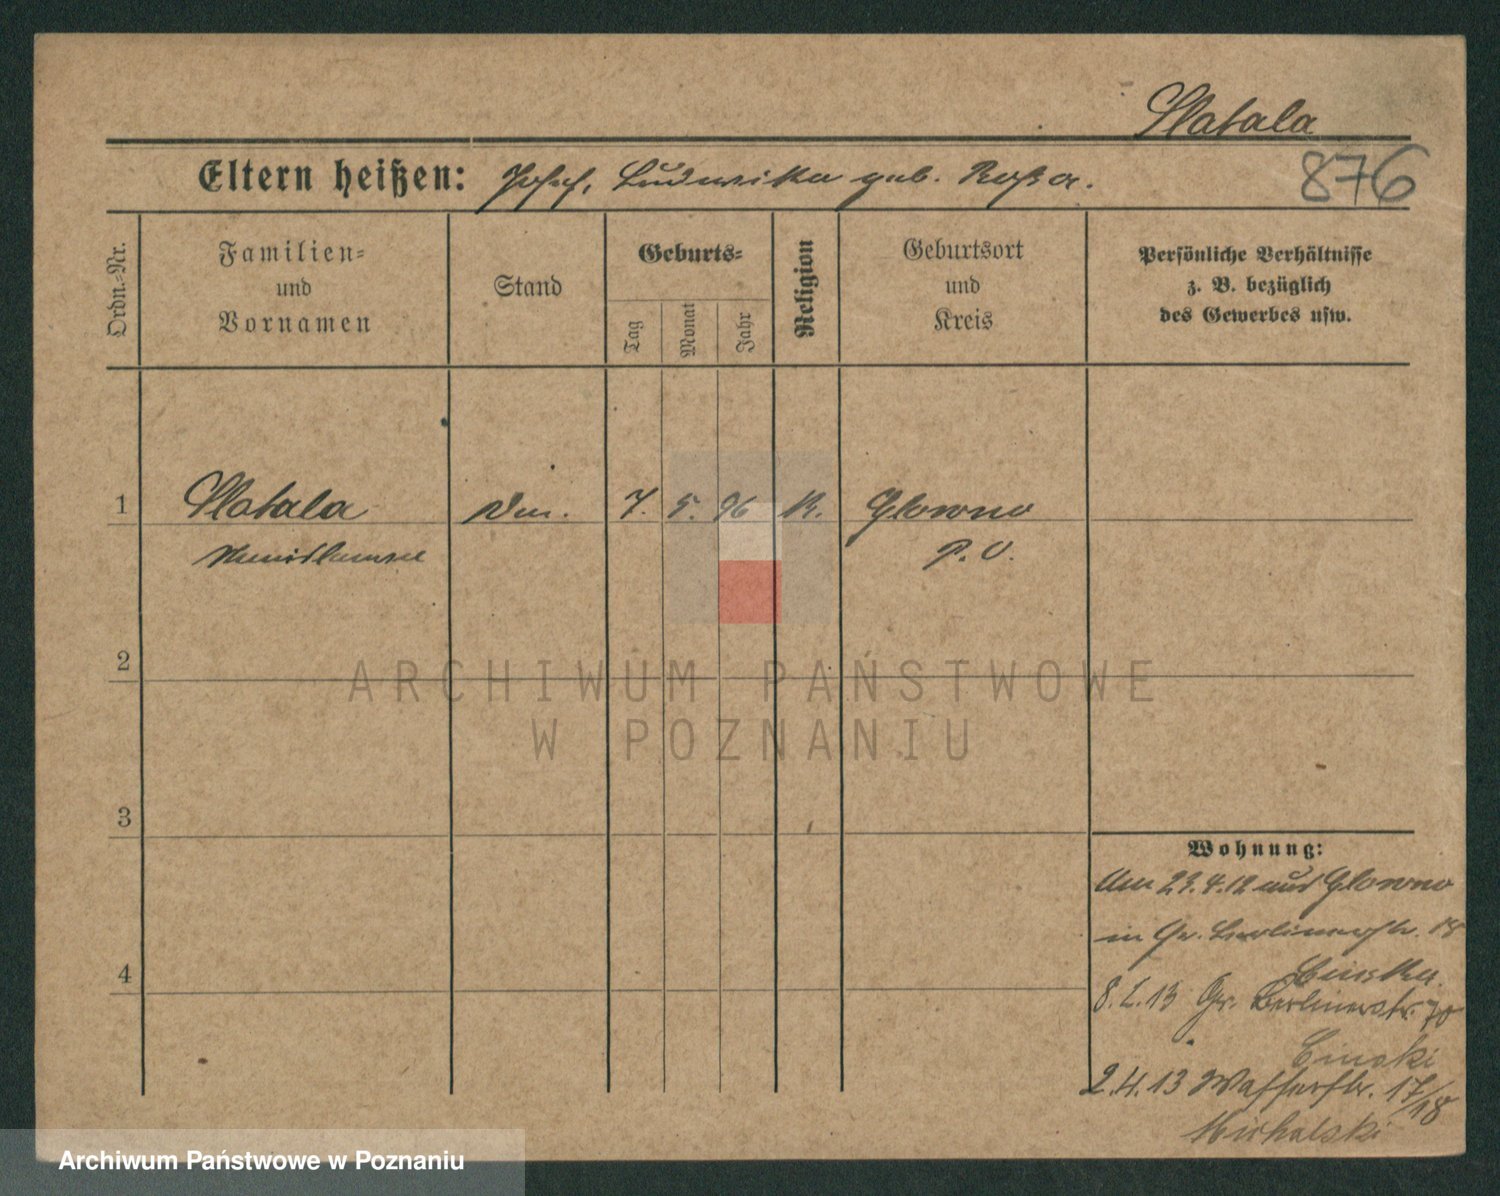 Slatala
Eltern heißen: Josef, Ludwika geb. Rossa.
876
Ordn.-Nr.
Familien-
und
Vornamen
Stand
Geburts-
Tag
Monat
Jahr
Religion
Geburtsort
und
Kreis
Persönliche Verhältnisse
z. B. bezüglich
des Gewerbes usw.
1 Slatala 7. 5. 96 K. Glowno
P. O.
2
3
4
Wohnung:
Am 23.4.12 aus Glowno
in Gr. Berlinerstr. 18
8. 2. 13 Gr. Berlinerstr. 70
2.4.13 Wasserstr. 17/18
Michalski
ARCHIWUM PAŃSTWOWE
W POZNANIU
Archiwum Państwowe w Poznaniu